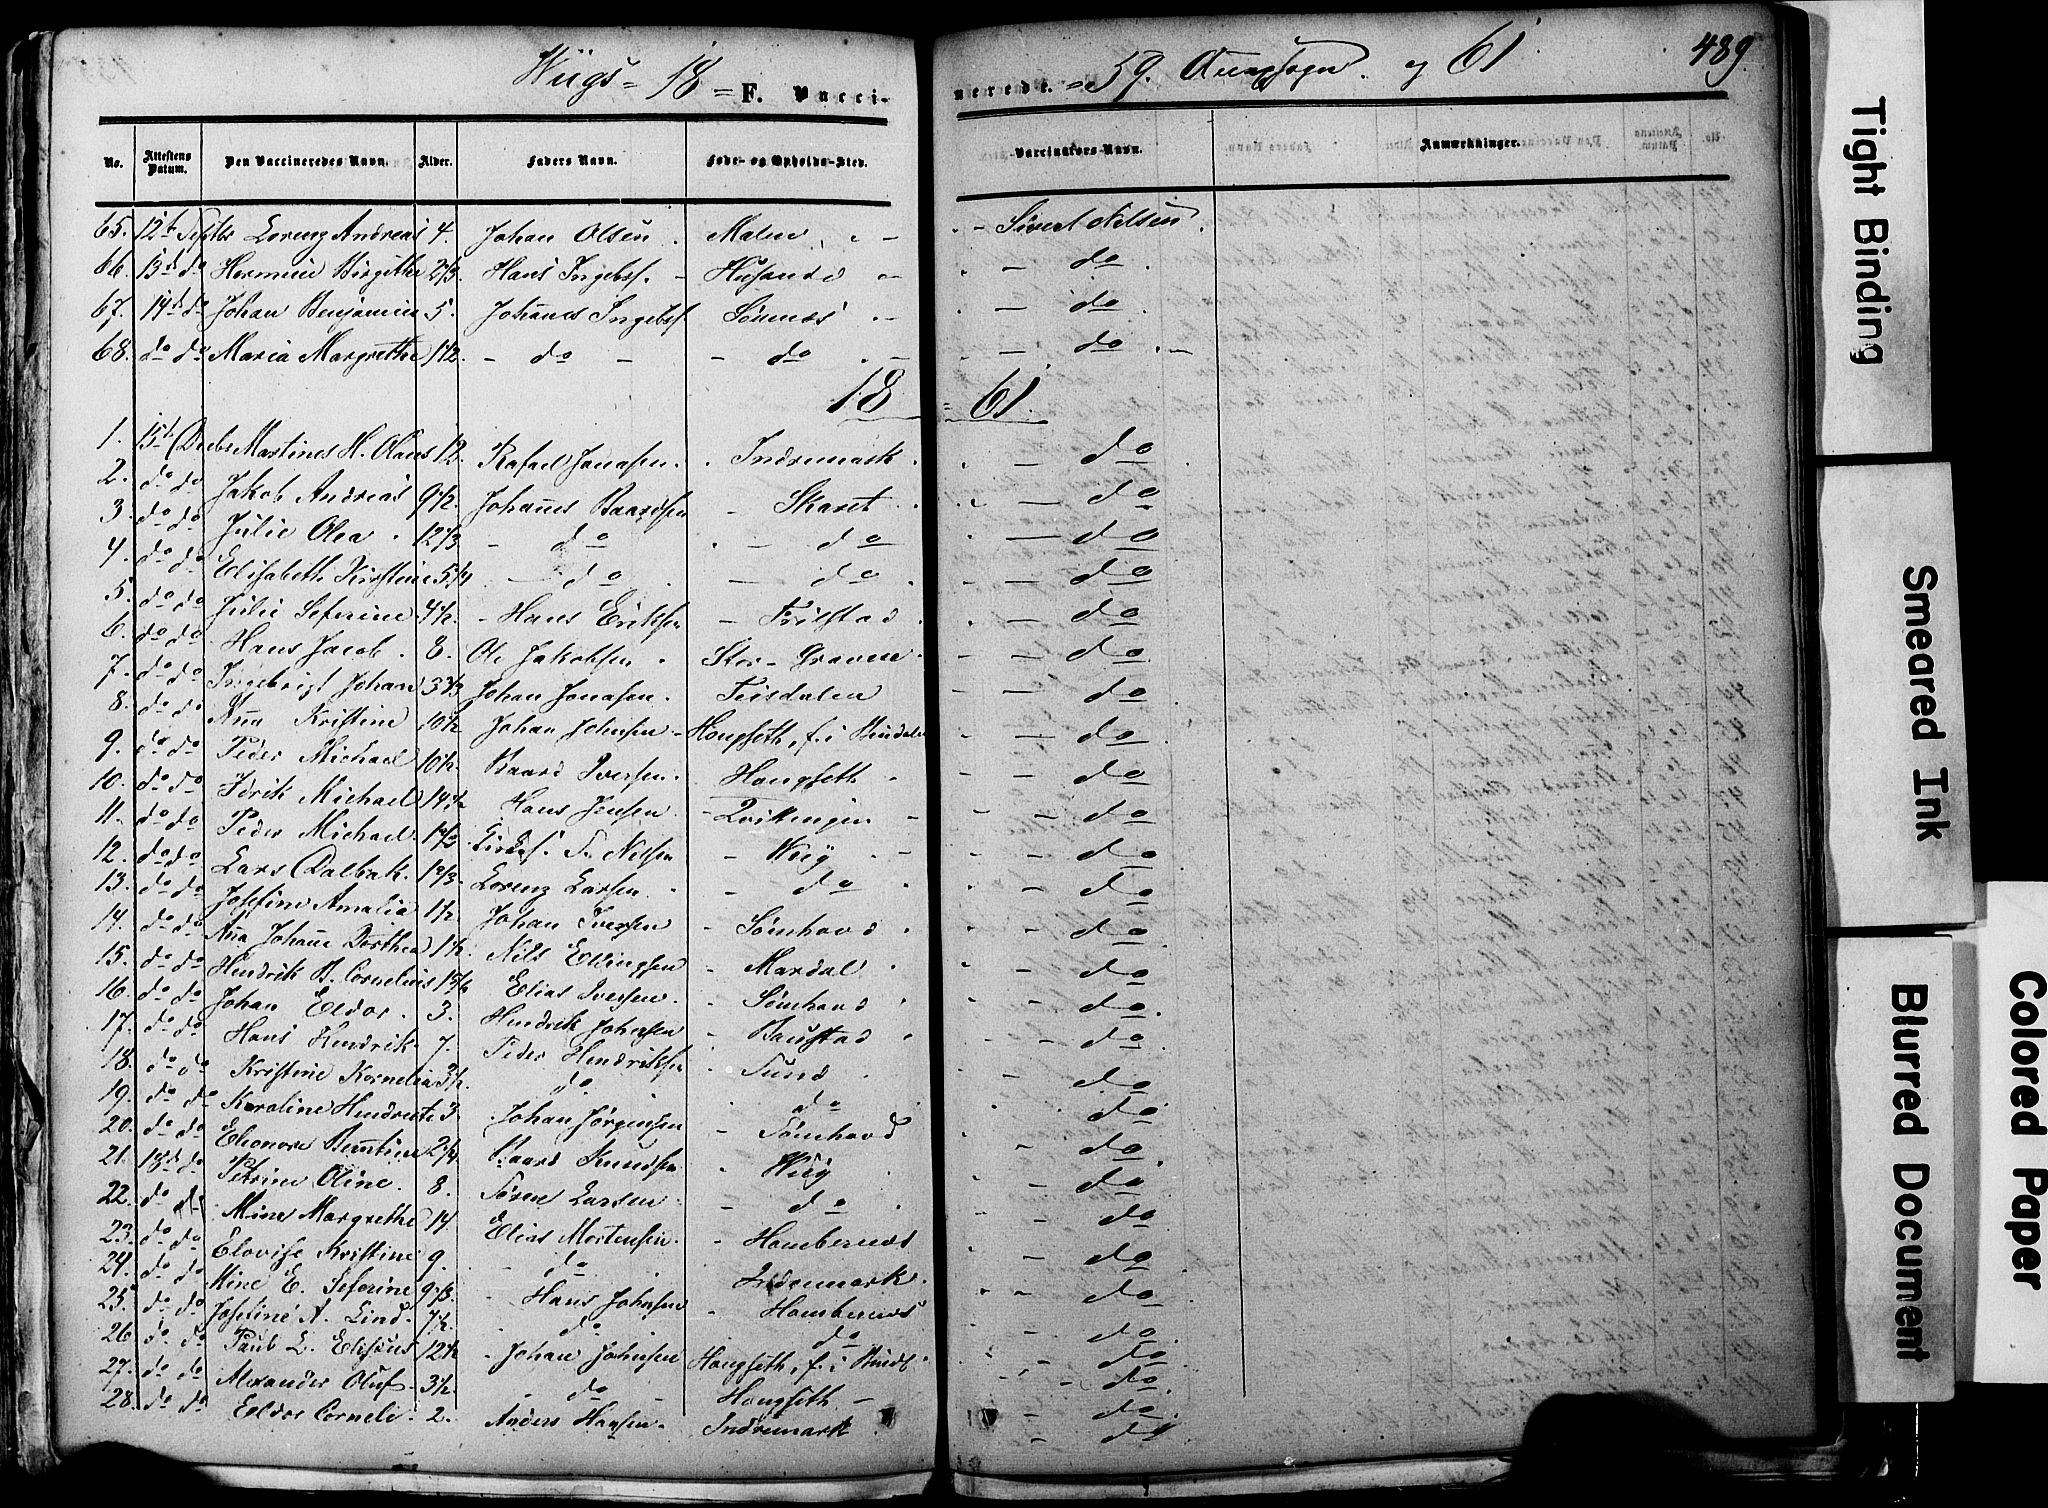 Wiigs- 18- F. Vacci- nerede. -59. Annexsogn. og 61 489.
No. Attestens Datum. Den Vaccineredes Navn. Alder. Faders Navn. Føde- og Opholds-Sted. Vaccinators Navn. Anmærkninger.
65. 12te Septbr Lorenz Andreas 4. Johan Olsen. Malen. - Sivert Nilsen.
66. 13d do Birgitha 2 1/3 Hans Ingebr. - - do
67. 14d do Johan Benjamin 5. Johanes Ingebr. Sønnæs - do
68. do do Maria Margrethe 1 1/2 - do - - do - - do -
18 61.
1. 15d Decbr Martines H. Olaus 12. Rafael Jonasen. Indremark. - do
2. do do Jakob Andreas 9 1/2 Johanes Baardsen - Skaret - do
3. do do Julie Olea. 12 1/3 - do - do - do
4. do do Elisabeth Kirstine 5 1/4 - do - do - do
5. do do Julie Seferine 4 1/2 - Hans Eriksen - Tristad. - do
6. do do Hans Jacob. 8. Ole Jakobsen. Stor-Gravene. - do
7. do do Ingebrigt Johan 3 1/3 Johan Jonasen. Teisdalen - do
8. do do Ana Kristine 10 1/2 Johan Johnsen - Hongseth, f. i - do
9. do do Peder Michael 10 1/2. Baard Iversen. Hongseth - do
10. do do Idrik Michael 14 1/2 Hans Jensen. - - do
11. do do Peder Michael. Nilsen - Wiig - do
12. do do Lars Dalbak. 1 2/3. Lorenz Larsen. - do - do
13. do do Josefine Amalia 1 1/2 Johan Iversen - Sømhovd - do
14. do do Ana Johane Dorthea 1 1/2. Nils Ellingsen - Mardal - do
15. do do Hendrik B. Cornelius Elias Iversen. - Sømhovd - do
16. do do Johan Eldor. 3. Hendrik Johnsen - Baustad - do
17. do do Hans Hendrik. 7. Peder Hendriksen - Sund. - do
18. do do Kristine Kornelia 3 1/2. do do - do
19. do do Karoline Hendrette 3. Johan Jørgensen - Sømhovd - do
20. do do Elenore Berntine 2 1/4 Baard Knudsen. - Wiig - do
21. 18d do Petrine Oline. 8. Søren Larsen - do - do
22. do do Mine Margrethe 14 Elias Mortensen. - Hombernes - do
23. do do Elovise Kristine 9. - do - Indremark. - do
24. do do Mine E. Seferine 9 1/3 - Hans Johnsen - Hombernes - do
25. do do Josefine A. Lind. 7 1/2. do do - do
26. do do Paul L. Eliseus 12 1/2 - Johan Johnsen Hongseth, f. i - do
27. do do Alexander Oluf. 3 1/2. do - Hongseth - - do
28. do do Eldor Corneli. 2. Anders Hansen. Indremark - do
- do
Tight Binding
Smeared Ink
Blurred Document
Colored Paper